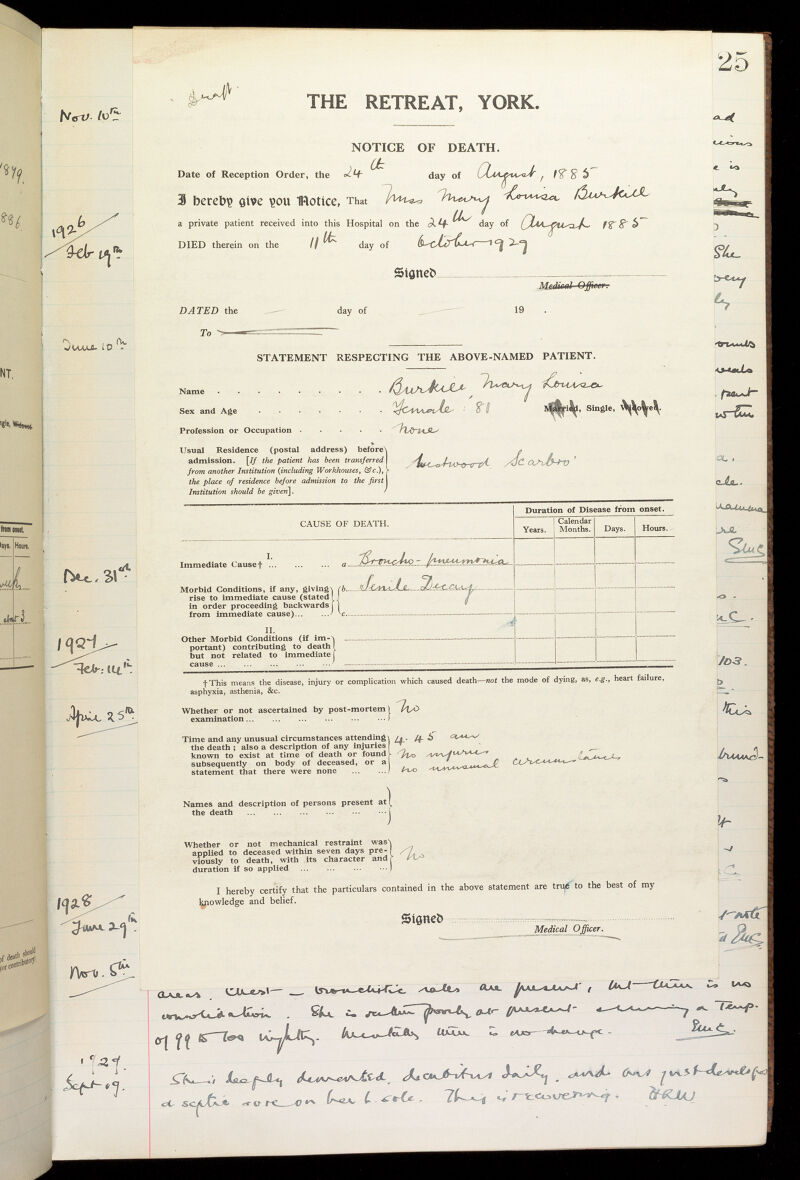 25
Draft
THE RETREAT, YORK.
NOTICE OF DEATH.
Date of Reception Order, the 24th day of August, 1885
I hereby give you Notice, That Miss Mary Louisa Burkill
a private patient received into this Hospital on the 24th day of August 1885
DIED therein on the 11th day of October 1929
Signed
Medical Officer.
DATED the — day of — 19 .
To
STATEMENT RESPECTING THE ABOVE-NAMED PATIENT.
Name . . . . . . . . . Burkill Mary Louisa
Sex and Age . . . . . . . Female : 81 Married, Single, Widowed.
Profession or Occupation . . . . . None
Usual Residence (postal address) before
admission. [If the patient has been transferred
from another Institution (including Workhouses, &c.),
the place of residence before admission to the first
Institution should be given].
Westwood Scarbro'
CAUSE OF DEATH.
Duration of Disease from onset.
Years. Calendar Months. Days. Hours.
I.
Immediate Cause† ... ... ... a Broncho-pneumonia
Morbid Conditions, if any, giving
rise to immediate cause (stated
in order proceeding backwards
from immediate cause)... ...
b. Senile Decay
c.
II.
Other Morbid Conditions (if im-
portant) contributing to death
but not related to immediate
cause ... ... ... ... ...
†This means the disease, injury or complication which caused death—not the mode of dying, as, e.g., heart failure,
asphyxia, asthenia, &c.
Whether or not ascertained by post-mortem
examination ... ... ... ... ... ...
No
Time and any unusual circumstances attending
the death; also a description of any injuries
known to exist at time of death or found
subsequently on body of deceased, or a
statement that there were none ... ...
4.45 am
No injuries
no unusual circumstances
Names and description of persons present at
the death ... ... ... ... ... ...
Whether or not mechanical restraint was
applied to deceased within seven days pre-
viously to death, with its character and
duration if so applied ... ... ... ...
No
I hereby certify that the particulars contained in the above statement are true to the best of my
knowledge and belief.
Signed
Medical Officer.
Nov. 10th
1926
Feb 19th
June 10th
Dec. 31st
1927
Feb: 14th
April 25th
1928
June 29th
Nov. 5th
areas. Chest – bronchitic rales are present, but there is no
consolidation. She is rather poorly at present running a Temp.
of 99 to 100 nightly. Mentally there is no change.
1929.
Sept 19.
She is deeply demented, decubitus daily, and has just developed
a septic sore on her L sole. This is recovering. HRW